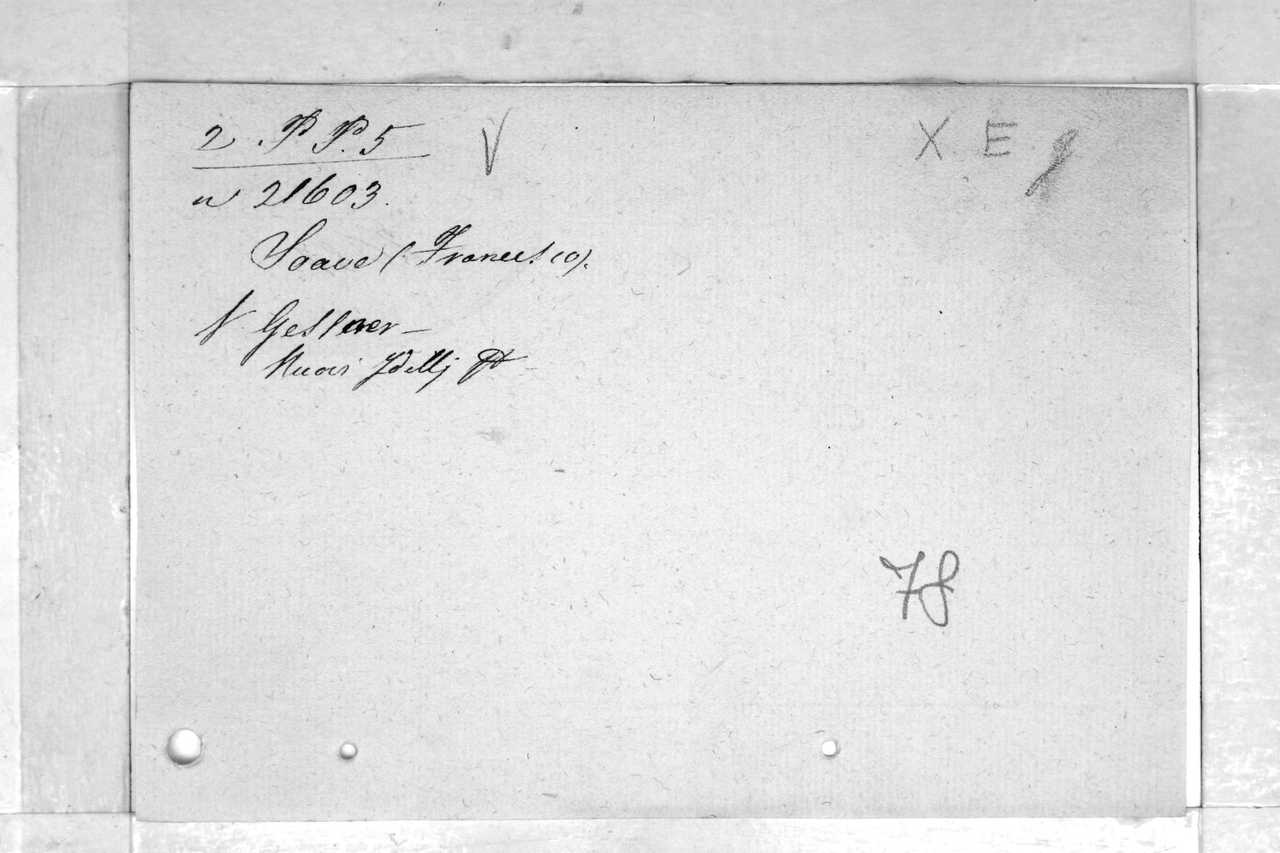 2 . P P. 5
V
X E
n 21603.
Soave (Francesco).
V Gessner —
Nuovi Idillj
78